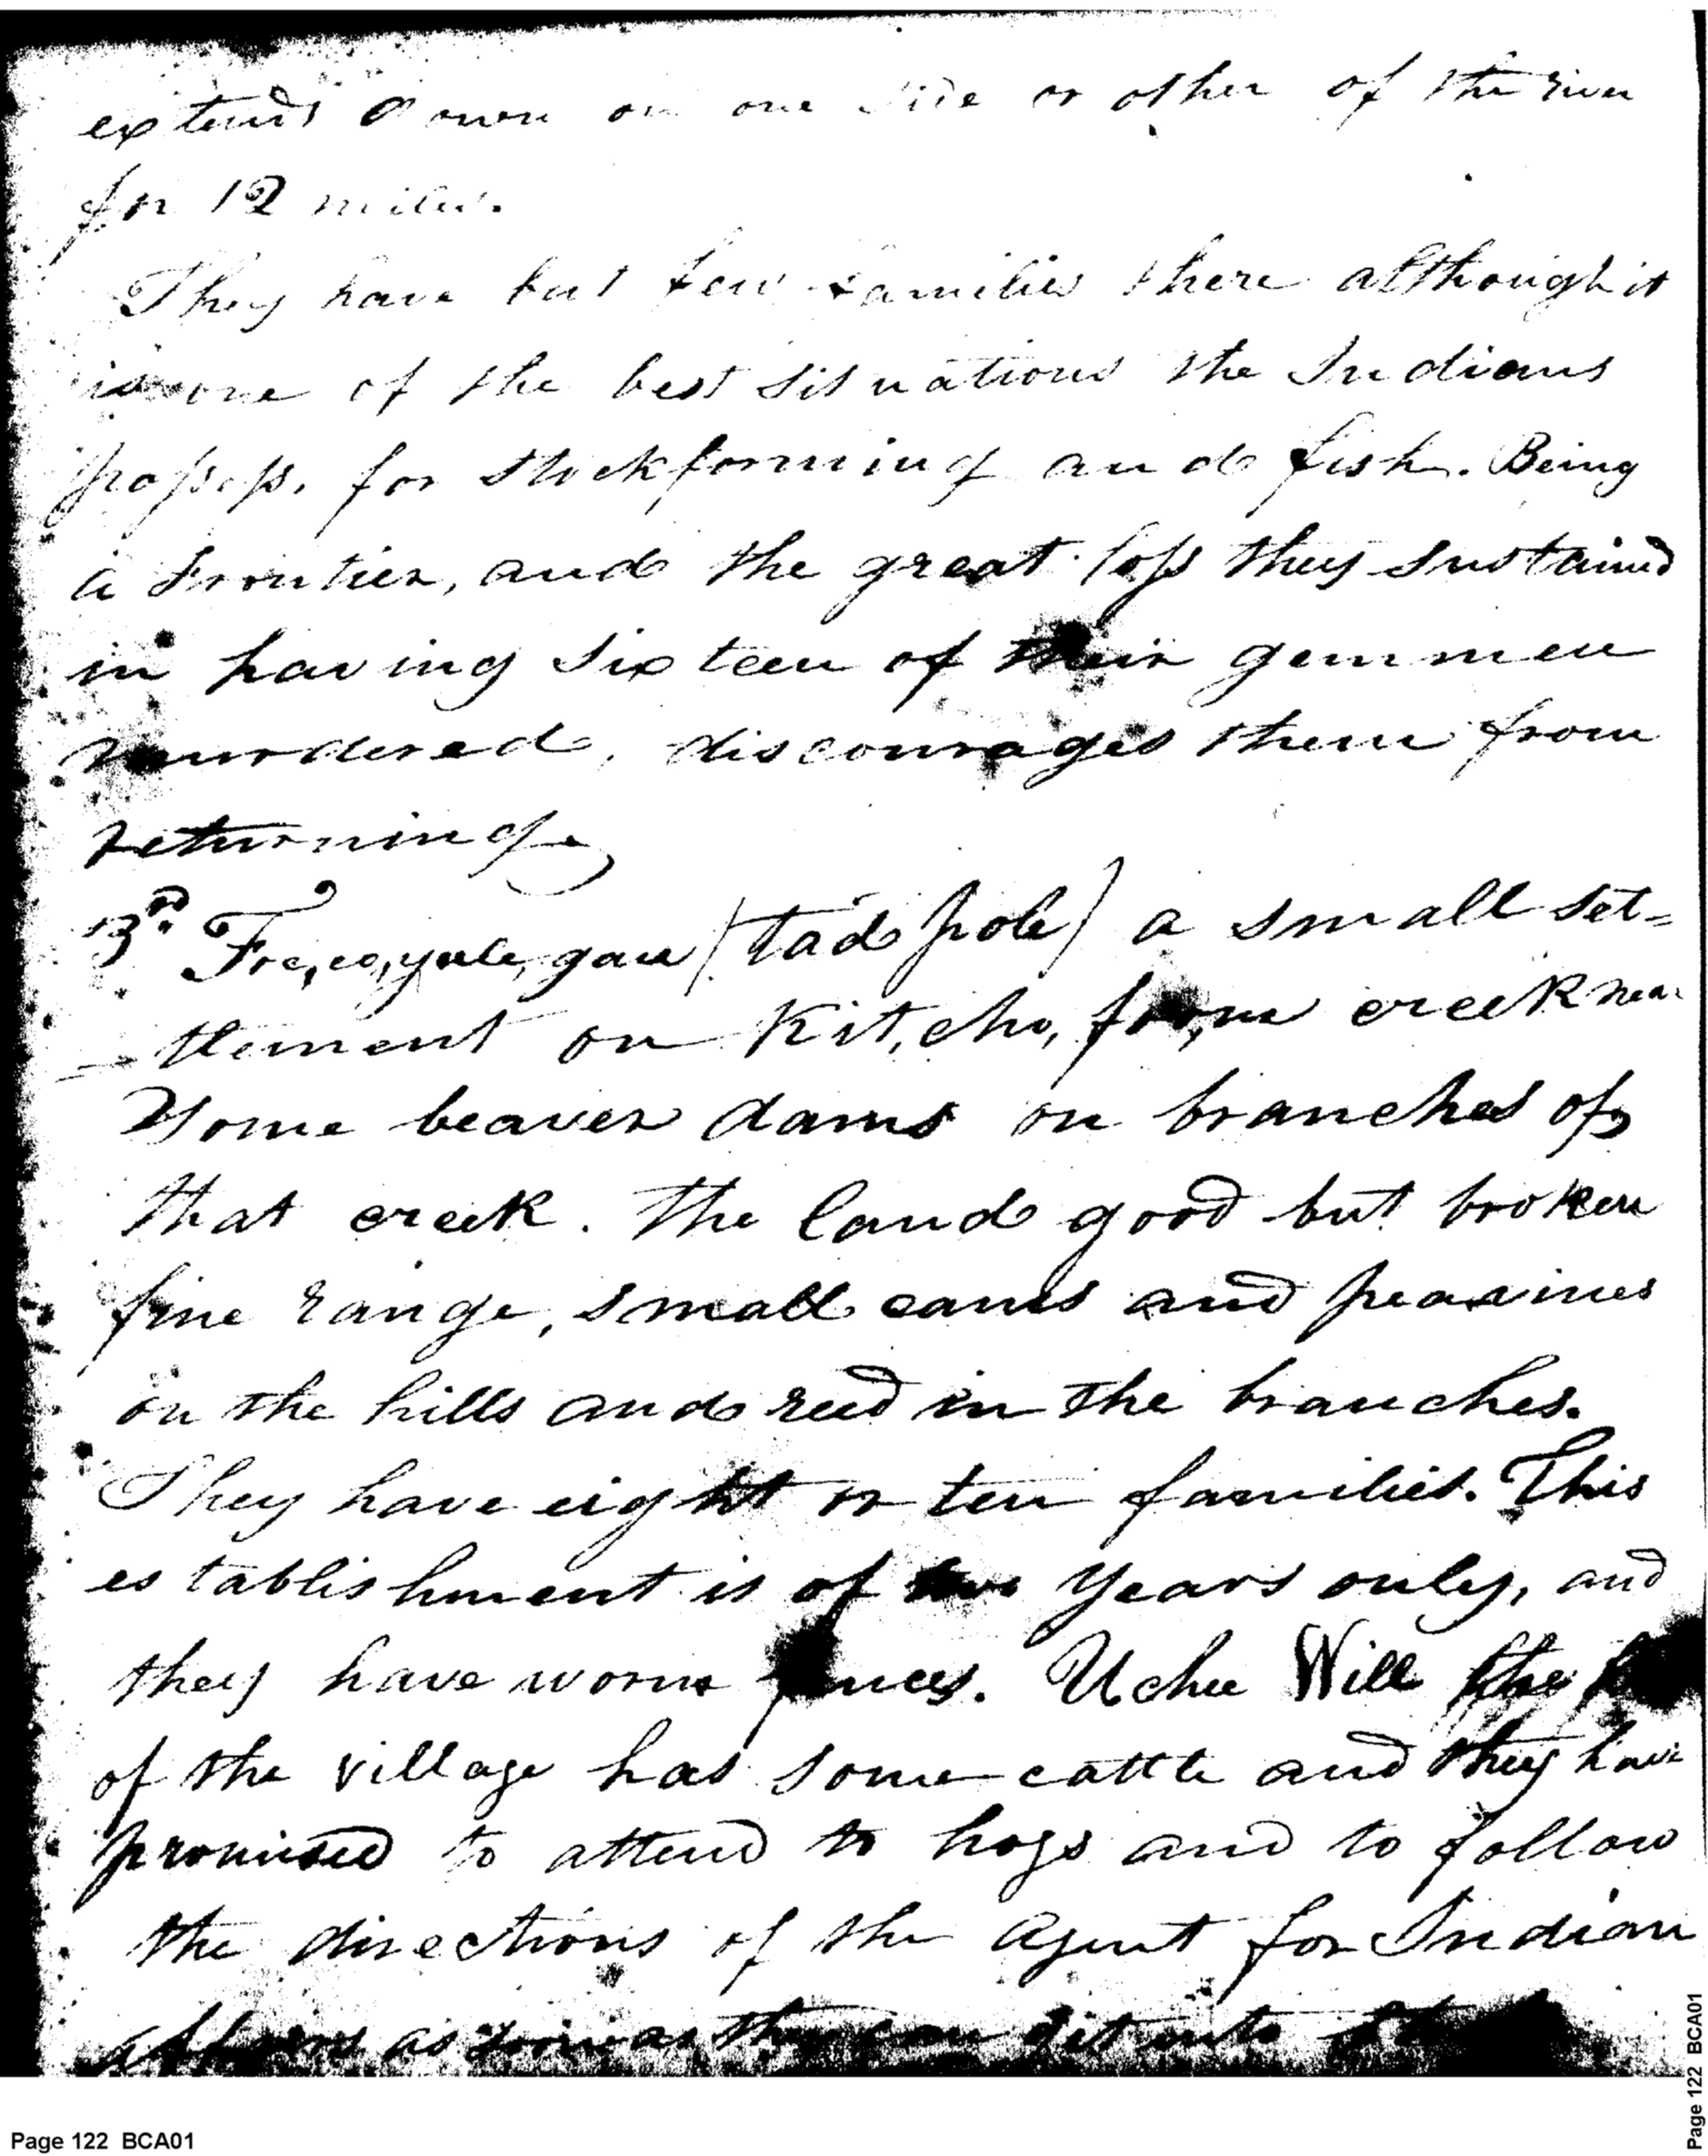 extends down on one side or other of the river
for 12 miles.
They have but few families there although it
is one of the best situations the Indians
possess, for stock farming and fish. Being
a Frontier, and the great loss they sustained
in having sixteen of their gunmen
murdered, discourages them from
returning.
3rd. Toc,co,yule,gau (tad pole) a small set-
-tlement on Kit,cho,foo,ne creek near
some beaver dams on branches of
that creek. The land good but broken
fine range, small canes and peavines
on the hills and reed in the branches.
They have eight or ten families. This
establishment is of two years only, and
they have worm fences. Uchee Will the
of the village has some cattle and they have
promised to attend to hogs and to follow
the directions of the Agent for Indian
affairs as soon as they can git into
Page 122 BCA01
Page 122 BCA01